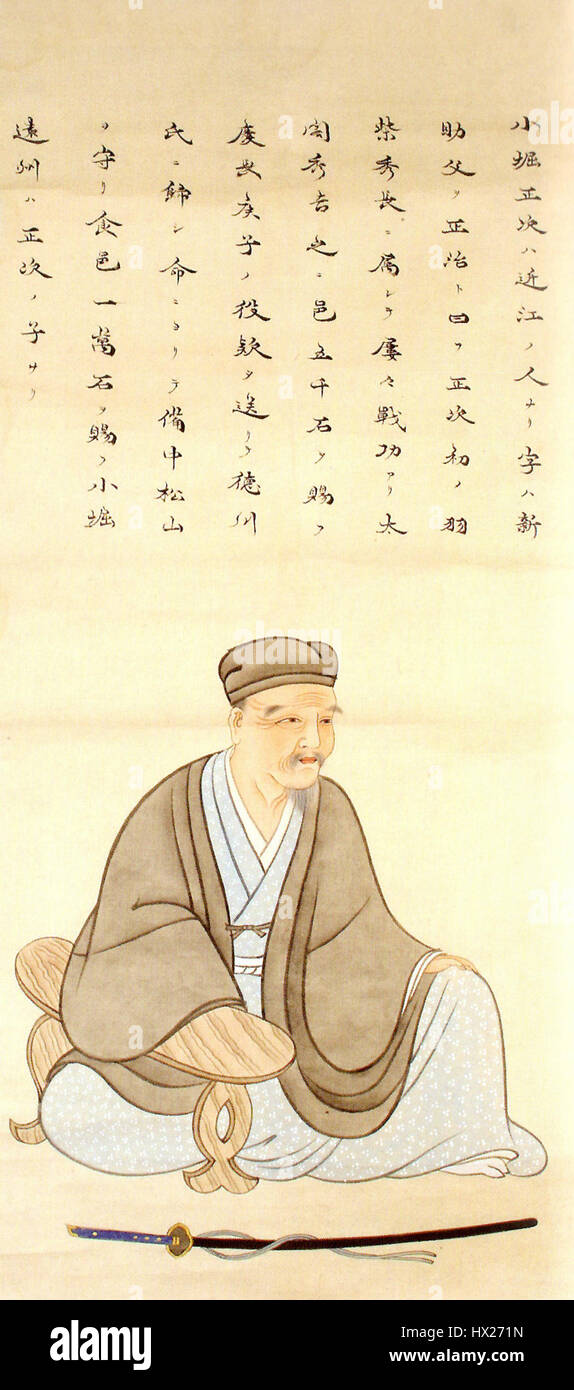 小堀正次ハ近江ノ人ナリ字ハ新
助父ヲ正治ト曰フ正次初ノ羽
柴秀長ニ属シテ屡々戦功アリ太
閤秀吉之ニ邑五千石ヲ賜フ
慶長庚子ノ役欵ヲ送リテ徳川
氏ニ歸シ命ニヨリテ備中松山
ヲ守リ食邑一萬石ヲ賜フ小堀
遠州ハ正次ノ子ナリ
alamy
alamy stock photo
HX271N
www.alamy.com